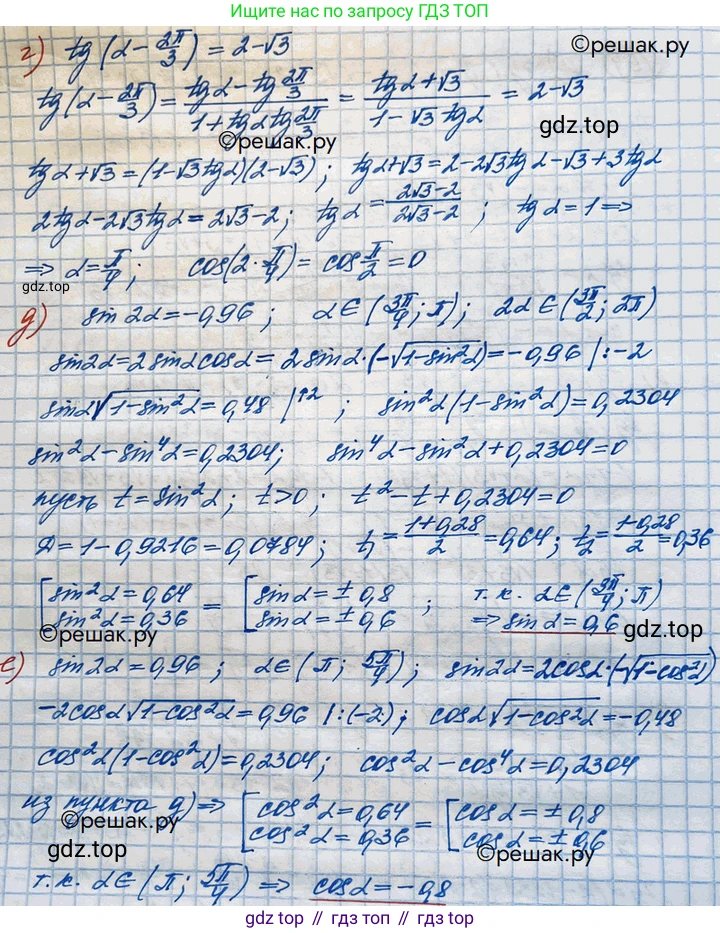 Ищите нас по запросу ГДЗ ТОП
г) tg(α - 2π/3) = 2-√3
©решак.ру
tg(α - 2π/3) = (tgα - tg 2π/3)/(1 + tgα tg 2π/3) = (tgα + √3)/(1 - √3 tgα) = 2-√3
©решак.ру
gdz.top
tgα + √3 = (1-√3tgα)(2-√3); tgα+√3 = 2-2√3tgα-√3+3tgα
2tgα - 2√3tgα = 2√3-2; tgα = (2√3-2)/(2√3-2); tgα = 1 =>
=> α = π/4; cos(2·π/4) = cos π/2 = 0
gdz.top
©решак.ру
д) sin2α = -0,96; α∈(3π/4; π); 2α∈(3π/2; 2π)
sin2α = 2sinαcosα = 2sinα·(-√(1-sin²α)) = -0,96 |:-2
sinα√(1-sin²α) = 0,48 |↑2; sin²α(1-sin²α) = 0,2304
sin²α - sin⁴α = 0,2304; sin⁴α - sin²α + 0,2304 = 0
пусть t = sin²α; t>0; t² - t + 0,2304 = 0
Д = 1 - 0,9216 = 0,0784; t₁ = (1+0,28)/2 = 0,64; t₂ = (1-0,28)/2 = 0,36
[sin²α = 0,64 = [sinα = ±0,8; т.к. α∈(3π/4; π)
sin²α = 0,36 sinα = ±0,6 => sinα = 0,6
©решак.ру
gdz.top
е) sin2α = 0,96; α∈(π; 5π/4); sin2α = 2cosα·(-√(1-cos²α))
-2cosα√(1-cos²α) = 0,96 |:(-2); cosα√(1-cos²α) = -0,48
cos²α(1-cos²α) = 0,2304; cos²α - cos⁴α = 0,2304
из пункта д) => [cos²α = 0,64 = [cosα = ±0,8
cos²α = 0,36 cosα = ±0,6
©решак.ру
gdz.top
©решак.ру
т.к. α∈(π; 5π/4) => cosα = -0,8
gdz.top // гдз.топ // gdz.top // гдз.топ // gdz.top